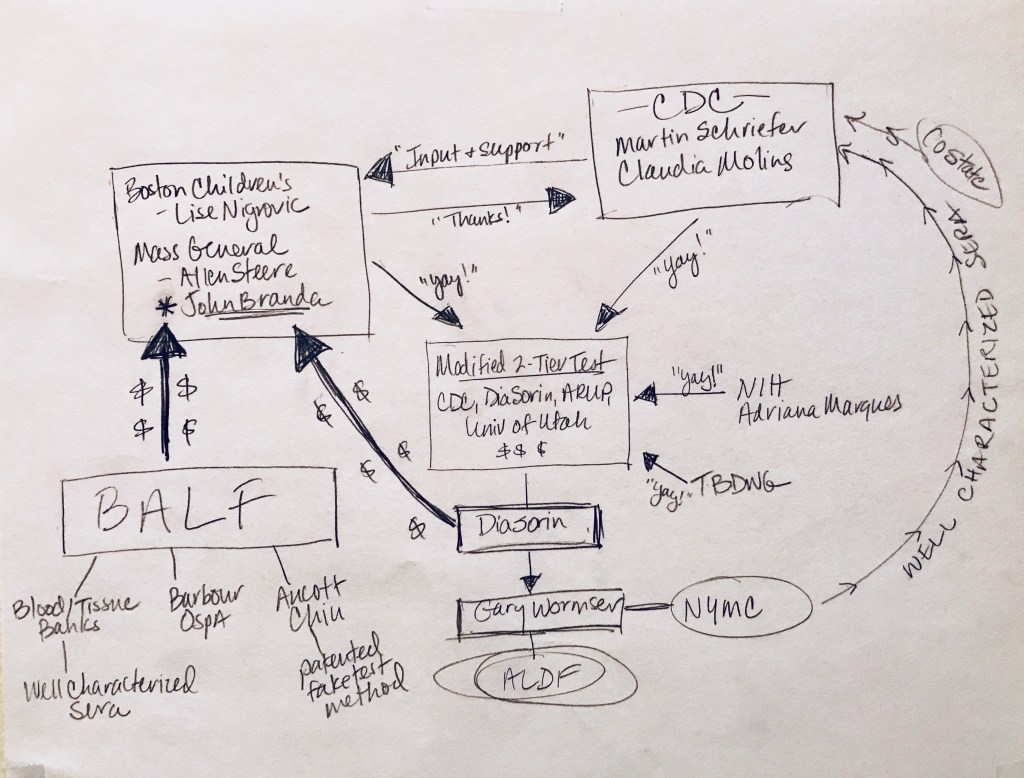 - CDC -
Martin Schriefer
Claudia Molins
CO State
"Input + Support"
"Thanks!"
Boston Children's
- Lise Nigrovic
Mass General
- Allen Steere
* John Branda
"yay!"
"yay!"
Modified 2-Tier Test
CDC, DiaSorin, ARUP,
Univ of Utah
$$ $
"yay!"
NIH
Adriana Marques
"yay!" TBDWG
WELL CHARACTERIZED SERA
$ $
$ $
$ $
$ $
$
BALF
DiaSorin
Blood/Tissue
Banks
Well Characterized
Sera
Barbour
OspA
Aucott
Chiu
patented
fake test
method
Gary Wormser
NYMC
ALDF